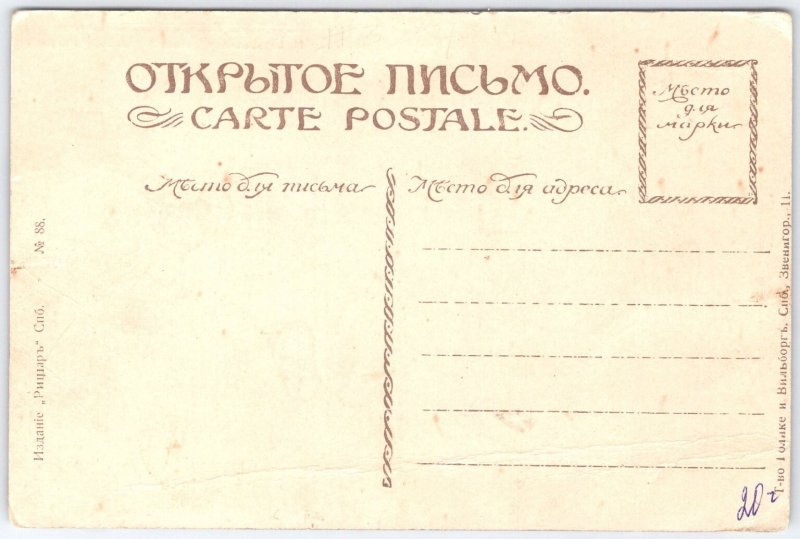 ОТКРЫТОЕ ПИСЬМО.
CARTE POSTALE.
Мѣсто
для
марки
Мѣсто для письма
Мѣсто для адреса
Изданіе „Рицаръ“ Спб. № 88.
Т-во Голике и Вильборгъ. Спб., Звенигор., 11.
20